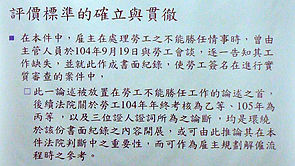 評價標準的確立與貫徹
在本件中，雇主在處理勞工之不能勝任情事時，曾由
主管人員於104年9月19日與勞工會談，逐一告知其工
作缺失，並就此作成書面紀錄，使勞工簽名在進行實
質審查的案件中，
此一論述被放置在勞工不能勝任工作的論述之首，
後續法院關於勞工104年年終考核為乙等、105年為
丙等，以及三位證人證詞所為之論斷，均是環繞
於該份書面紀錄之內容開展，或可由此推論其在本
件法院判斷中之重要性，而可作為雇主規劃解僱流
程時之參考。